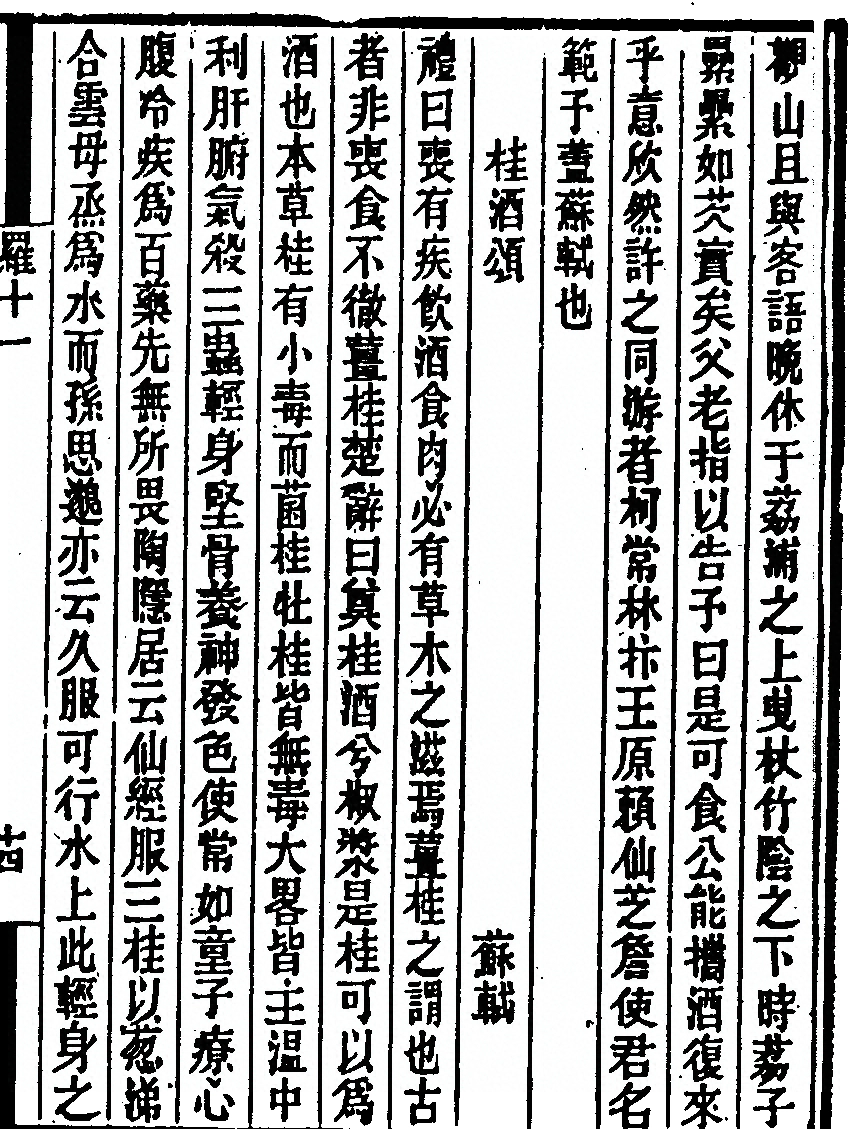 觀山且與客語晚休于荔浦之上曳杖竹陰之下時荔子
纍纍如芡實矣父老指以告予曰是可食公能攜酒復來
乎意欣然許之同游者柯常林抃王原賴仙芝詹使君名
範予蓋蘇軾也
桂酒頌
蘇軾
禮曰喪有疾飲酒食肉必有草木之滋焉薑桂之謂也古
者非喪食不徹薑桂楚辭曰奠桂酒兮椒漿是桂可以爲
酒也本草桂有小毒而菌桂牡桂皆無毒大畧皆主溫中
利肝腑氣殺三蟲輕身堅骨養神發色使常如童子療心
腹冷疾爲百藥先無所畏陶隱居云仙經服三桂以葱涕
合雲母烝爲水而孫思邈亦云久服可行水上此輕身之
羅十一
十四